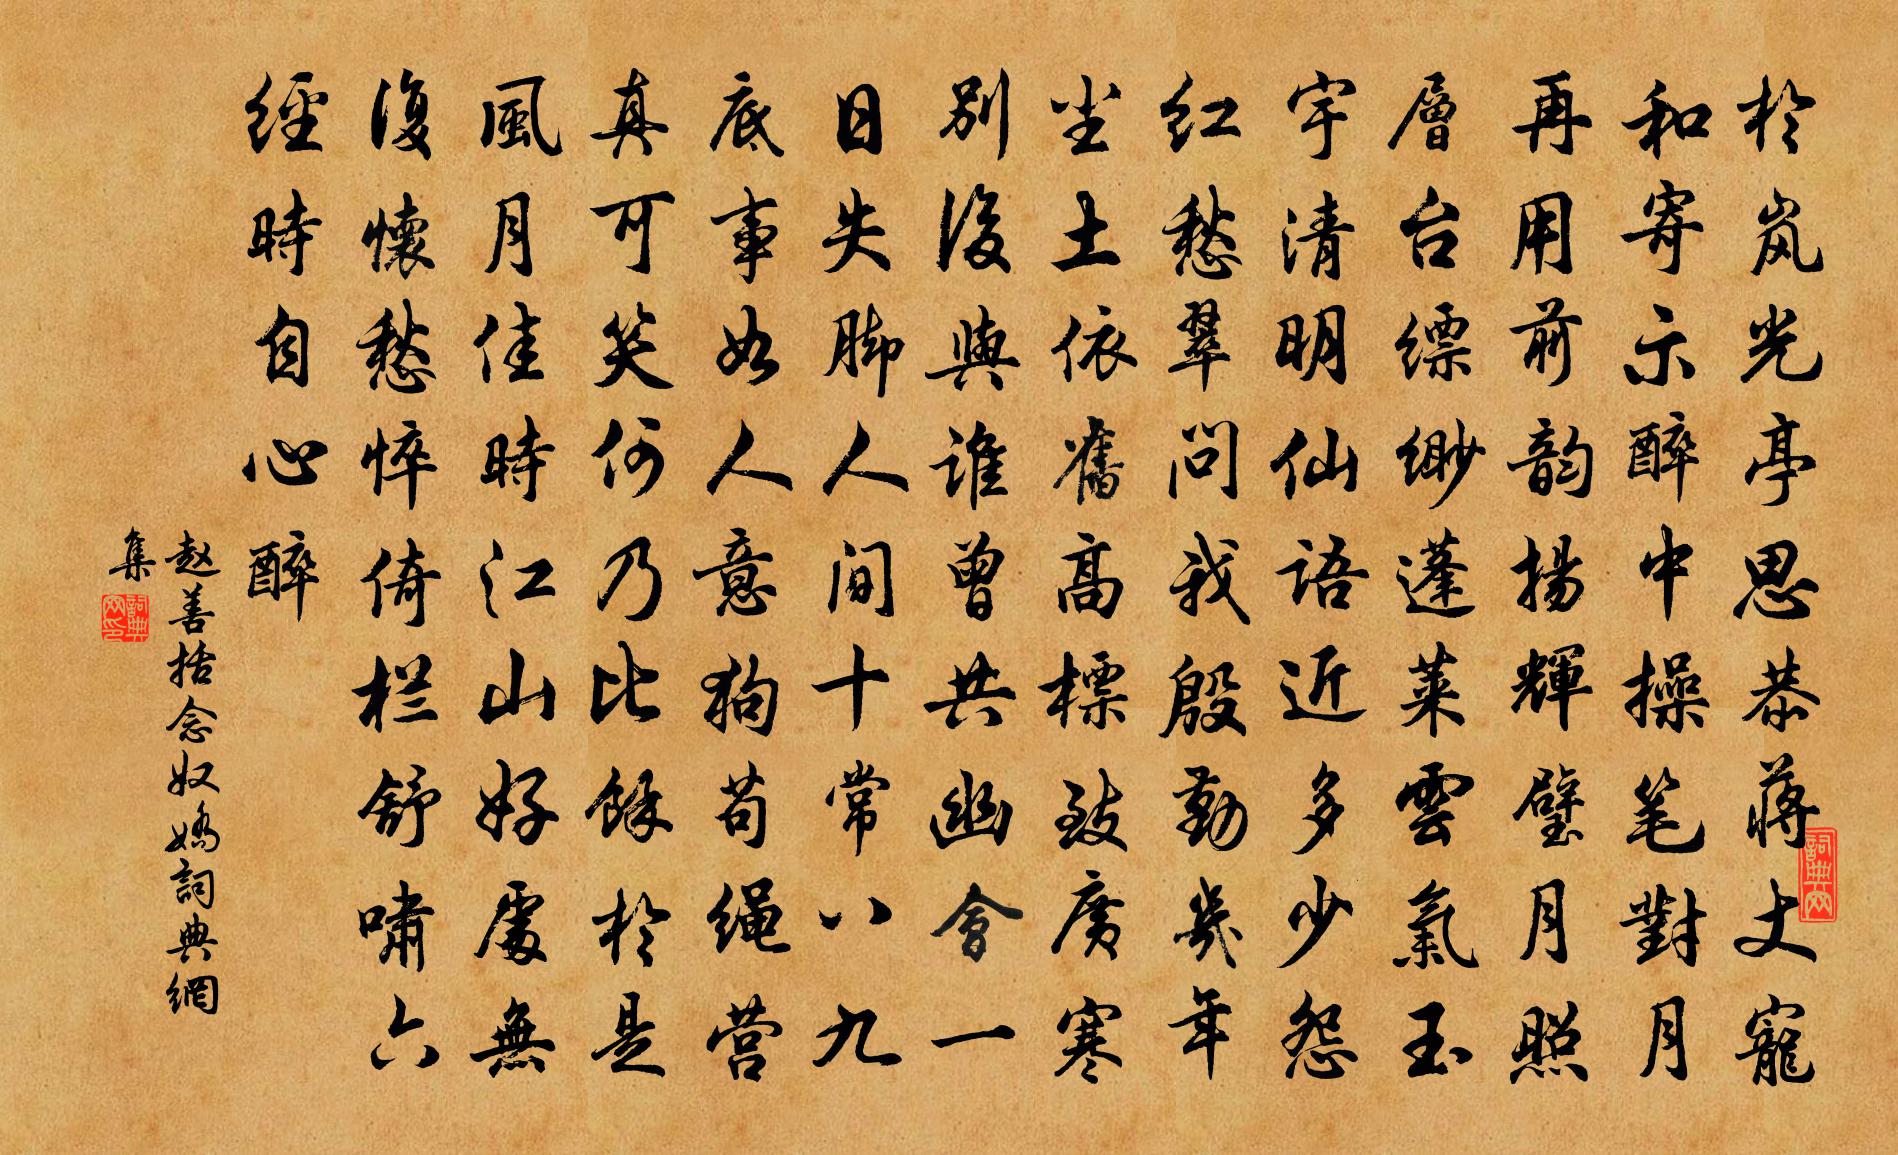 於岚光亭思恭蒋丈寵
和寄示醉中操笔對月
再用前韵揚輝璧月照
層台缥缈蓬莱雲氣玉
宇清明仙語近多少怨
红愁翠問我殷勤幾年
尘土依舊高標致广寒
别後與谁曾共幽會一
日失脚人间十常八九
底事如人意狗苟绳营
真可笑何乃比餘於是
風月佳時江山好處無
復懷愁悴倚栏舒啸六
經時自心醉
赵善括念奴嬌詞典網
集
詞典网
詞典网印